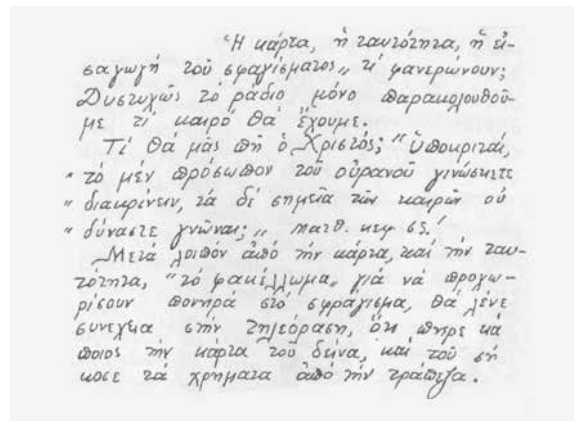 "Ἡ κάρτα, ἡ ταυτότητα, ἡ εἰ-
σαγωγή τοῦ σφαγίσματος„ τί φανερώνουν;
Δυστυχῶς τό ράδιο μόνο παρακολουθοῦ-
με τί καιρό θά ἔχουμε.
Τί θά μᾶς πῆ ὁ Χριστός; "Ὑποκριταί,
"τό μέν πρόσωπον τοῦ οὐρανοῦ γινώσκετε
"διακρίνειν, τά δέ σημεῖα τῶν καιρῶν οὐ
"δύναστε γνῶναι;„ ματθ. κεφ ις.!
Μετά λοιπόν ἀπό τήν κάρτα, καί τήν ταυ-
τότητα, "τό φακέλλωμα„ γιά νά προχω-
ρίσουν πονηρά στό σφράγισμα, θά λένε
συνεχεια στήν τηλεόραση, ὅτι πηρε κά
ποιος τήν κάρτα τοῦ δεῖνα, καί τοῦ σή
κοσε τά χρηματα ἀπό τήν τράπεζα.